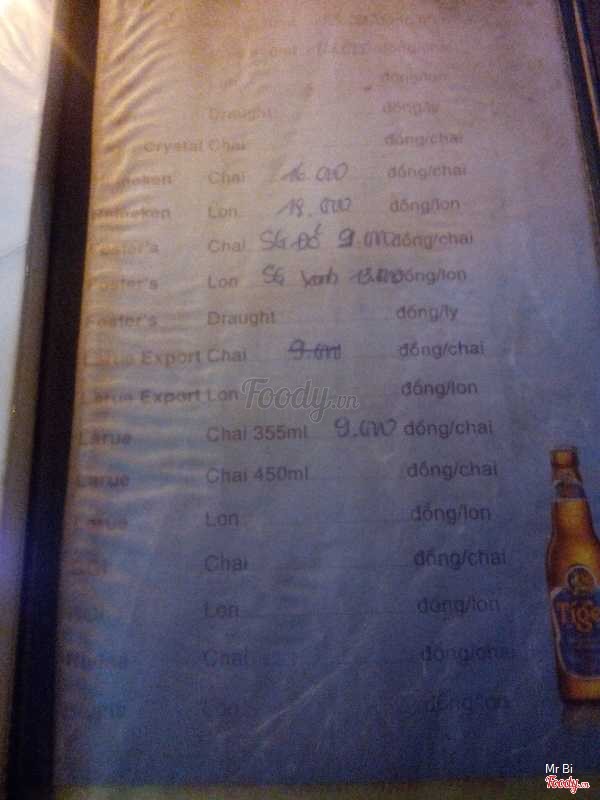 đồng/lon
Draught đồng/ly
Crystal Chai đồng/chai
Heineken Chai 16.000 đồng/chai
Heineken Lon 18.000 đồng/lon
Foster's Chai SG Đỏ 9.000 đồng/chai
Foster's Lon SG Xanh 13.000 đồng/lon
Foster's Draught đồng/ly
Larue Export Chai 9.000 đồng/chai
Larue Export Lon đồng/lon
Foody.vn
Larue Chai 355ml 9.000 đồng/chai
Larue Chai 450ml đồng/chai
Larue Lon đồng/lon
Chai đồng/chai
Lon đồng/lon
Chai đồng/chai
đồng/lon
Tiger
Mr Bi
Foody.vn